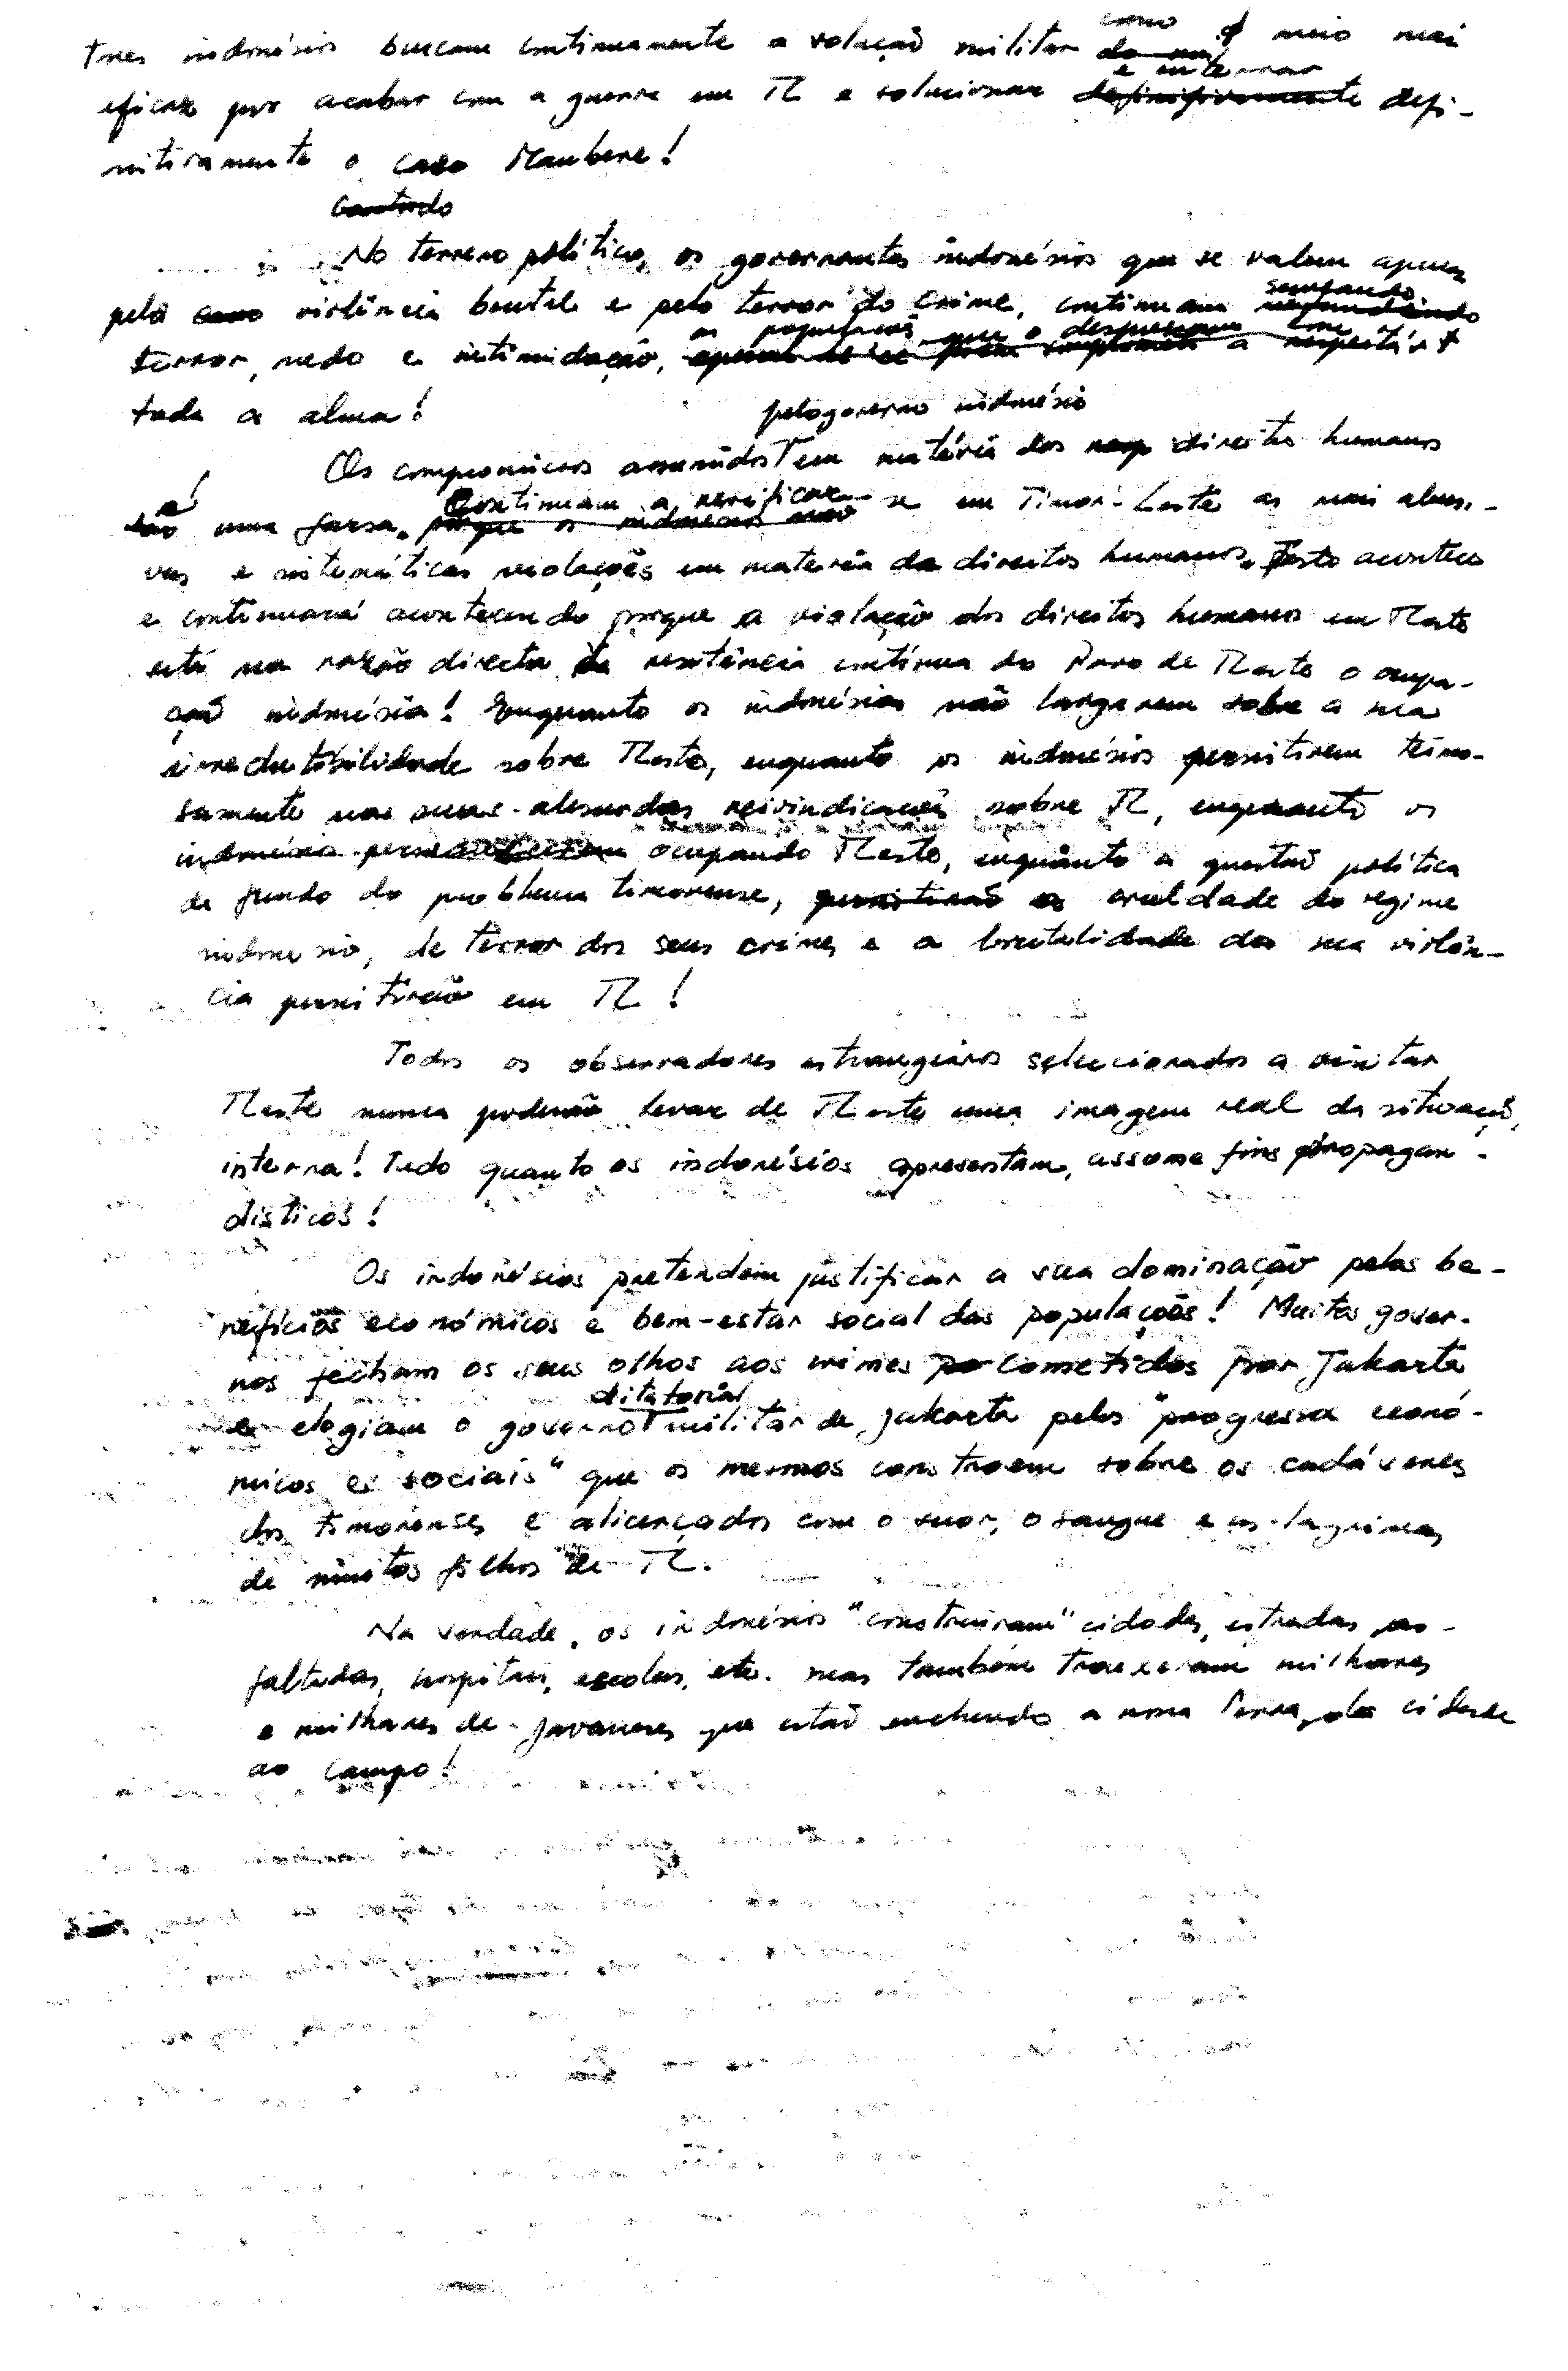 tres indonésios buscam continuamente a solução militar como o meio mais
eficaz por acabar com a guerra em TL e encerrar e solucionar definitivamente defi-
nitivamente o caso Maubere!
Contudo
No terreno político, os governantes indonésios que se valem apenas
pela violência brutal e pelo terror do crime, continuam semeando
terror, medo e intimidação, as populações que o desprezam com
toda a alma!
pelo governo indonésio
Os compromissos assumidos em matéria dos direitos humanos
é uma farsa. Continuam a verificar-se em Timor-Leste as mais abusi-
vas e sistemáticas violações em matéria de direitos humanos. Isto acontece
e continuará acontecendo porque a violação dos direitos humanos em TLeste
está na razão directa da resistência contínua do Povo de TLeste o ocupa-
ção indonésia! Enquanto os indonésios não largarem sobre a sua
irredutibilidade sobre TLeste, enquanto os indonésios persistirem teimo-
samente nas suas absurdas reivindicações sobre TL, enquanto os
indonésios permanecerem ocupando TLeste, enquanto a questão política
de fundo do problema timorense, persistirão a crueldade do regime
indonésio, de terror dos seus crimes e a brutalidade da sua violên-
cia persistirão em TL!
Todos os observadores estrangeiros selecionados a visitar
TLeste nunca poderão levar de TLeste uma imagem real da situação
interna! Tudo quanto os indonésios apresentam, assume fins propagan-
disticos!
Os indonésios pretendem justificar a sua dominação pelos be-
nefícios económicos e bem-estar social das populações! Muitos gover-
nos fecham os seus olhos aos crimes cometidos por Jakarta
ditatorial
e elogiam o governo militar de Jakarta pelos "progressos econó-
micos e sociais" que os mesmos constroem sobre os cadáveres
dos timorenses e alicerçados com o suor, o sangue e as lágrimas
de muitos filhos de TL.
Na verdade, os indonésios "construiram" cidades, estradas as-
faltadas, hospitais, escolas, etc. mas também trouxeram milhares
e milhares de javaneses que estão enchendo a nossa Terra, da cidade
ao campo!